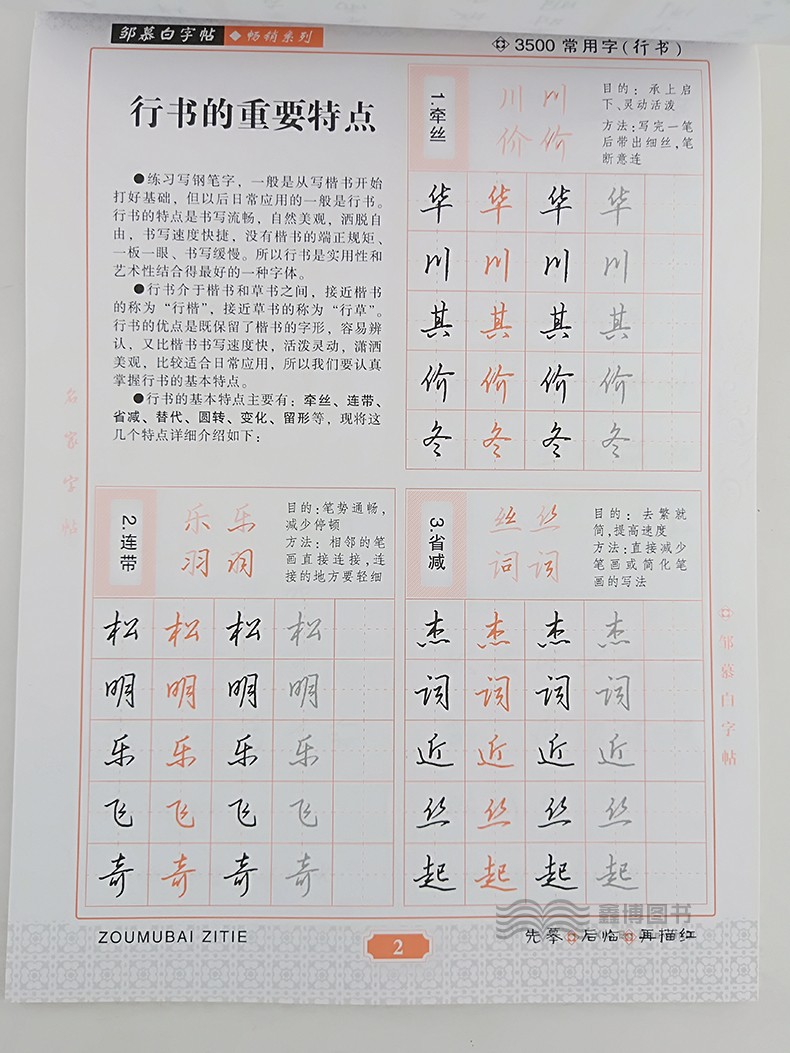 邹慕白字帖 ◆畅销系列
3500 常用字(行书)
行书的重要特点
●练习写钢笔字，一般是从写楷书开始
打好基础，但以后日常应用的一般是行书。
行书的特点是书写流畅，自然美观，洒脱自
由，书写速度快捷，没有楷书的端正规矩、
一板一眼、书写缓慢。所以行书是实用性和
艺术性结合得最好的一种字体。
●行书介于楷书和草书之间，接近楷书
的称为“行楷”，接近草书的称为“行草”。
行书的优点是既保留了楷书的字形，容易辨
认，又比楷书书写速度快，活泼灵动，潇洒
美观，比较适合日常应用，所以我们要认真
掌握行书的基本特点。
●行书的基本特点主要有：牵丝、连带、
省减、替代、圆转、变化、留形等，现将这
几个特点详细介绍如下：
1.牵丝
川 川
价 价
目的：承上启
下、灵动活泼
方法：写完一笔
后带出细丝，笔
断意连
华 华 华 华
川 川 川 川
其 其 其 其
价 价 价 价
冬 冬 冬 冬
2.连带
乐 乐
羽 羽
目的：笔势通畅，
减少停顿
方法：相邻的笔
画直接连接，连
接的地方要轻细
松 松 松 松
明 明 明 明
乐 乐 乐 乐
飞 飞 飞 飞
奇 奇 奇 奇
3.省减
丝 丝
词 词
目的：去繁就
简，提高速度
方法：直接减少
笔画或简化笔
画的写法
杰 杰 杰 杰
词 词 词 词
近 近 近 近
丝 丝 丝 丝
起 起 起 起
名家字帖
邹慕白字帖
鑫博图书
ZOUMUBAI ZITIE
2
先摹 后临 再描红